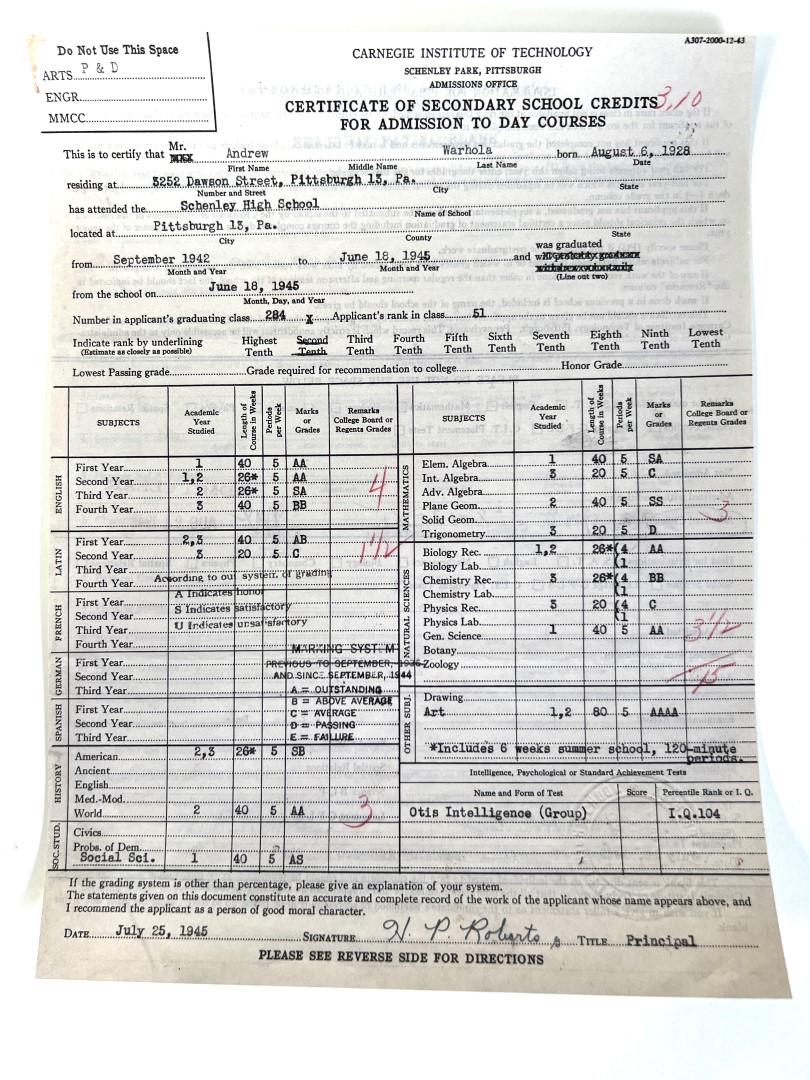 A307-2000-12-43
Do Not Use This Space
ARTS P & D
ENGR.
MMCC.
CARNEGIE INSTITUTE OF TECHNOLOGY
SCHENLEY PARK, PITTSBURGH
ADMISSIONS OFFICE
CERTIFICATE OF SECONDARY SCHOOL CREDITS 3.10
FOR ADMISSION TO DAY COURSES
This is to certify that Mr. Andrew Warhola born August 6, 1928
First Name Middle Name Last Name Date
residing at 3252 Dawson Street, Pittsburgh 13, Pa.
Number and Street City State
has attended the Schenley High School
Name of School
located at Pittsburgh 13, Pa.
City County State
was graduated
from September 1942 to June 18, 1945 and
Month and Year Month and Year
(Line out two)
from the school on June 18, 1945
Month, Day, and Year
Number in applicant's graduating class 284 x Applicant's rank in class 51
Indicate rank by underlining Highest Tenth Second Tenth Third Tenth Fourth Tenth Fifth Tenth Sixth Tenth Seventh Tenth Eighth Tenth Ninth Tenth Lowest Tenth
(Estimate as closely as possible)
Lowest Passing grade Grade required for recommendation to college Honor Grade
SUBJECTS Academic Year Studied Length of Course in Weeks Periods per Week Marks or Grades Remarks College Board or Regents Grades
ENGLISH
First Year 1 40 5 AA
Second Year 1,2 26* 5 AA
Third Year 2 26* 5 SA 4
Fourth Year 3 40 5 BB
LATIN
First Year 2,3 40 5 AB
Second Year 3 20 5 C 1 1/2
Third Year
Fourth Year
According to our system of grading
A Indicates honor
S Indicates satisfactory
U Indicates unsatisfactory
FRENCH
First Year
Second Year
Third Year
Fourth Year
MARKING SYSTEM
PREVIOUS TO SEPTEMBER, 1936
AND SINCE SEPTEMBER, 1944
A = OUTSTANDING
B = ABOVE AVERAGE
C = AVERAGE
D = PASSING
E = FAILURE
GERMAN
First Year
Second Year
Third Year
SPANISH
First Year
Second Year
Third Year
HISTORY
American 2,3 26* 5 SB
Ancient
English
Med.-Mod.
World 2 40 5 AA 3
SOC. STUD.
Civics
Probs. of Dem.
Social Sci. 1 40 5 AS
SUBJECTS Academic Year Studied Length of Course in Weeks Periods per Week Marks or Grades Remarks College Board or Regents Grades
MATHEMATICS
Elem. Algebra 1 40 5 SA
Int. Algebra 3 20 5 C
Adv. Algebra
Plane Geom. 2 40 5 SS 3
Solid Geom.
Trigonometry 3 20 5 D
NATURAL SCIENCES
Biology Rec. 1,2 26* (4 AA
Biology Lab. (1
Chemistry Rec. 3 26* (4 BB
Chemistry Lab. (1
Physics Rec. 3 20 (4 C
Physics Lab. (1
Gen. Science 1 40 5 AA 3 1/2
Botany
Zoology
15
OTHER SUBJ.
Drawing
Art 1,2 80 5 AAAA
*Includes 6 weeks summer school, 120-minute
periods.
Intelligence, Psychological or Standard Achievement Tests
Name and Form of Test Score Percentile Rank or I. Q.
Otis Intelligence (Group) I.Q.104
If the grading system is other than percentage, please give an explanation of your system.
The statements given on this document constitute an accurate and complete record of the work of the applicant whose name appears above, and
I recommend the applicant as a person of good moral character.
DATE July 25, 1945 SIGNATURE H. P. Roberts TITLE Principal
PLEASE SEE REVERSE SIDE FOR DIRECTIONS